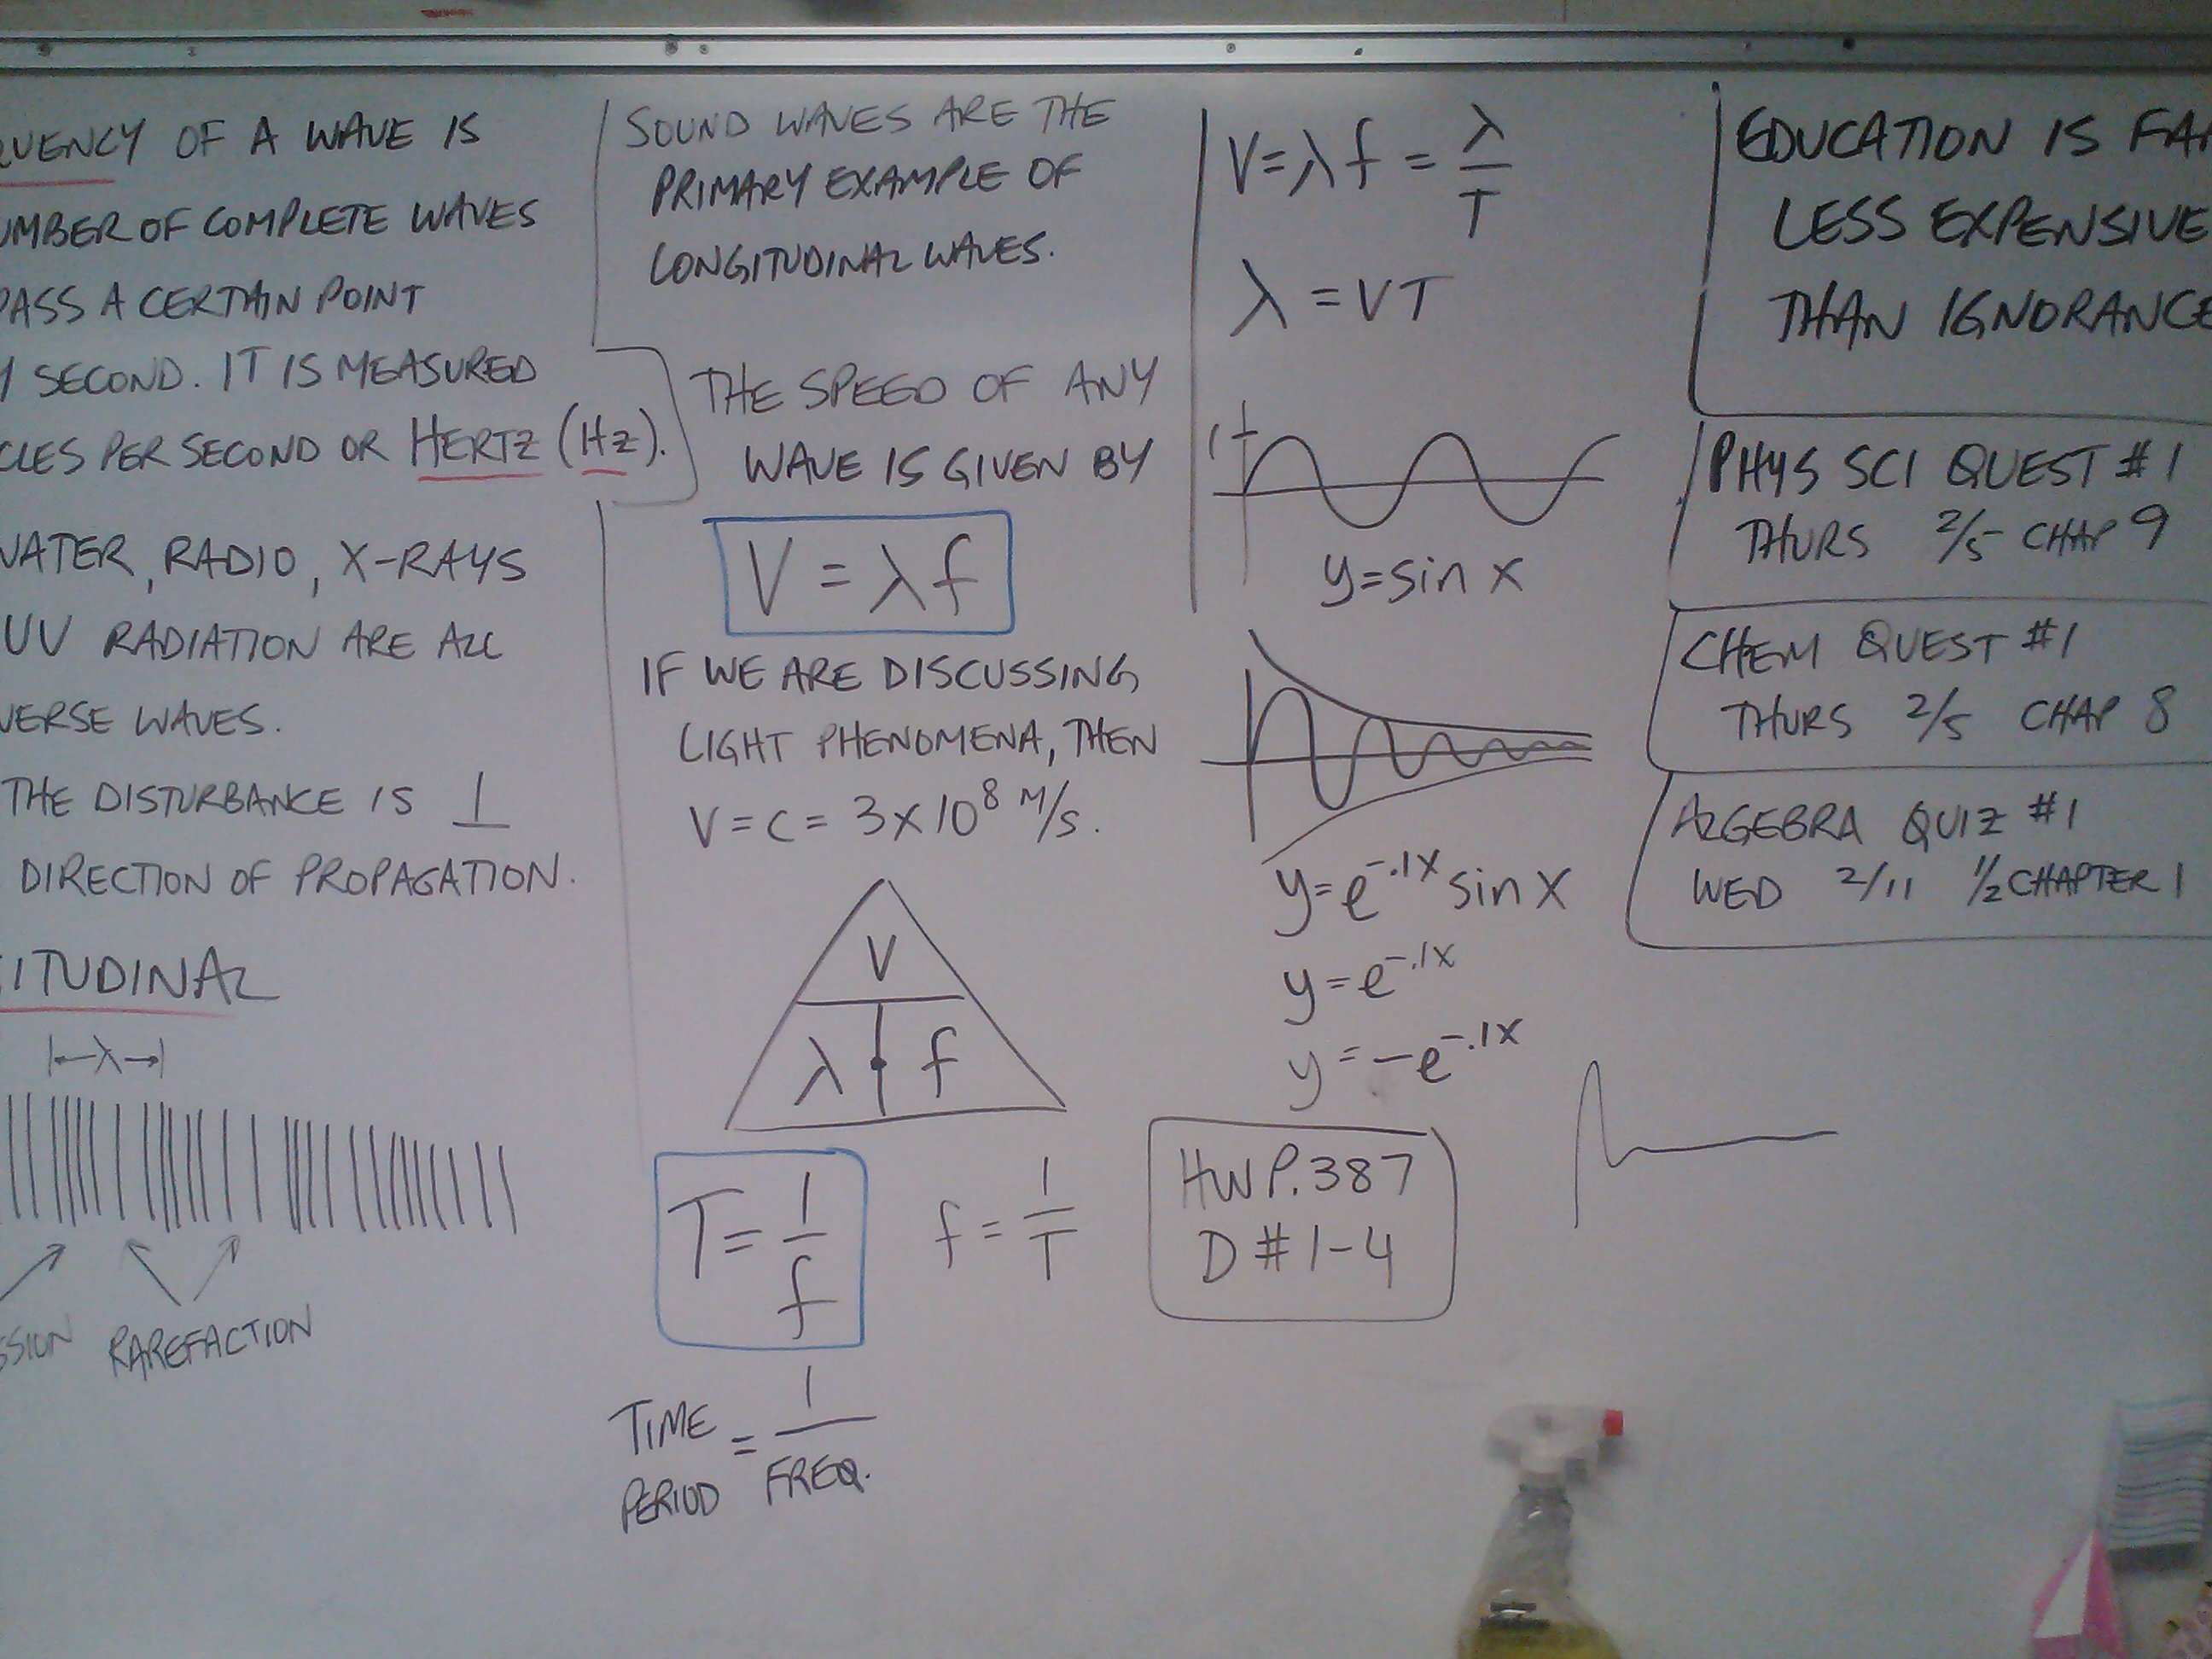 QUENCY OF A WAVE IS
UMBER OF COMPLETE WAVES
PASS A CERTAIN POINT
Y SECOND. IT IS MEASURED
CLES PER SECOND OR HERTZ (Hz).
WATER, RADIO, X-RAYS
UV RADIATION ARE ALL
VERSE WAVES.
THE DISTURBANCE IS ⊥
DIRECTION OF PROPAGATION.
ITUDINAL
λ
SSION RAREFACTION
SOUND WAVES ARE THE
PRIMARY EXAMPLE OF
LONGITUDINAL WAVES.
THE SPEED OF ANY
WAVE IS GIVEN BY
V = λf
IF WE ARE DISCUSSING
LIGHT PHENOMENA, THEN
V = C = 3 x 10⁸ M/s.
V
λ · f
T = 1/f
f = 1/T
TIME PERIOD = 1/FREQ.
V = λf = λ/T
λ = VT
1
y = sin x
y = e^-.1x sin x
y = e^-.1x
y = -e^-.1x
HW P. 387
D # 1-4
EDUCATION IS FAR
LESS EXPENSIVE
THAN IGNORANCE
PHYS SCI QUEST #1
THURS 2/5 CHAP 9
CHEM QUEST #1
THURS 2/5 CHAP 8
ALGEBRA QUIZ #1
WED 2/11 1/2 CHAPTER 1